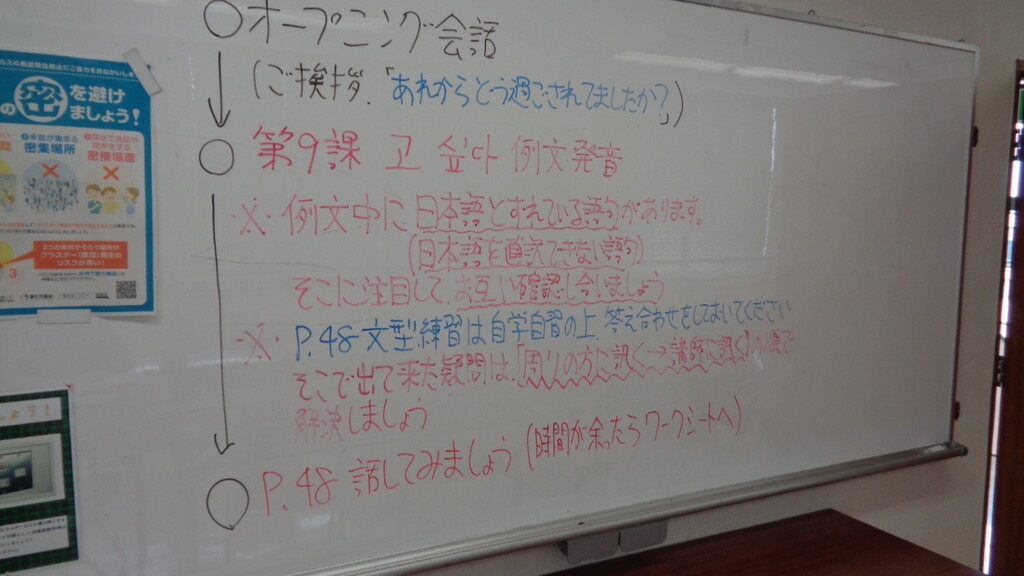 ○オープニング会話
(ご挨拶、「あれからどう過ごされてましたか?」)
○第9課 고 싶다 例文発音
※例文中に日本語とずれている語句があります。
(日本語を直訳できない語句)
そこに注目して、お互い確認し合いましょう
※P.48文型練習は自学自習の上、答え合わせをしておいてください
そこで出て来た疑問は、「周りの方に訊く→講師に訊く」の順で
解決しましょう
○P.48 話してみましょう(時間が余ったらワークシートへ)
を避け
ましょう!
②多数が集まる
密集場所
③間近で会話や
発声をする
密接場面
3つの条件がそろう場所が
クラスター(集団)発生の
リスクが高い!
3
しょう!